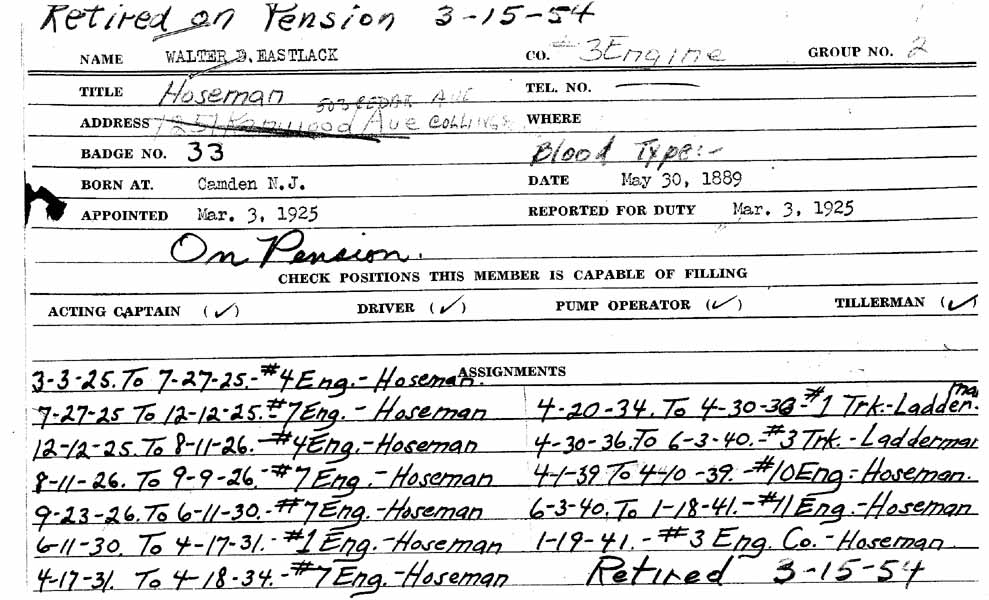 Retired on Pension 3-15-54
NAME WALTER D. EASTLACK CO. #3Engine GROUP NO. 2
TITLE Hoseman TEL. NO. —
503 CEDAR AVE
ADDRESS 1251 Kenwood Ave COLLINGS WHERE
BADGE NO. 33 Blood Type:-
BORN AT. Camden N.J. DATE May 30, 1889
APPOINTED Mar. 3, 1925 REPORTED FOR DUTY Mar. 3, 1925
On Pension.
CHECK POSITIONS THIS MEMBER IS CAPABLE OF FILLING
ACTING CAPTAIN (✓) DRIVER (✓) PUMP OPERATOR (✓) TILLERMAN (✓)
ASSIGNMENTS
3-3-25. To 7-27-25.-#4 Eng.-Hoseman.
7-27-25 To 12-12-25.-#7 Eng.-Hoseman
12-12-25. To 8-11-26.-#4 Eng.-Hoseman
8-11-26. To 9-9-26.-#7 Eng.-Hoseman
9-23-26. To 6-11-30.-#7 Eng.-Hoseman
6-11-30. To 4-17-31.-#1 Eng.-Hoseman
4-17-31. To 4-18-34.-#7 Eng.-Hoseman
4-20-34. To 4-30-36-#1 Trk.-Ladderman.
4-30-36. To 6-3-40.-#3 Trk.-Ladderman
4-1-39 To 4-10-39.-#10 Eng.-Hoseman.
6-3-40. To 1-18-41.-#11 Eng.-Hoseman
1-19-41.-#3 Eng. Co.-Hoseman
Retired 3-15-54